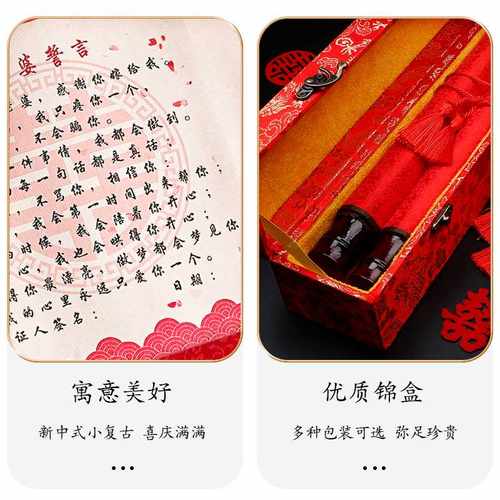 婆誓言
婆，感谢你嫁给我。
，我只疼你一个，
，不会骗你。
件事情，我都会做到。
每一句话都是真话；
，不骂你，相信你；
，我会第一时间出来帮你；
时候，我会陪着你开心；
心，我也会哄得你开心；
得你最漂亮，做梦都会梦见你
的心里永远只爱你一个。
证人签名： 日期：
寓意美好
新中式小复古 喜庆满满
•••
优质锦盒
多种包装可选 弥足珍贵
•••